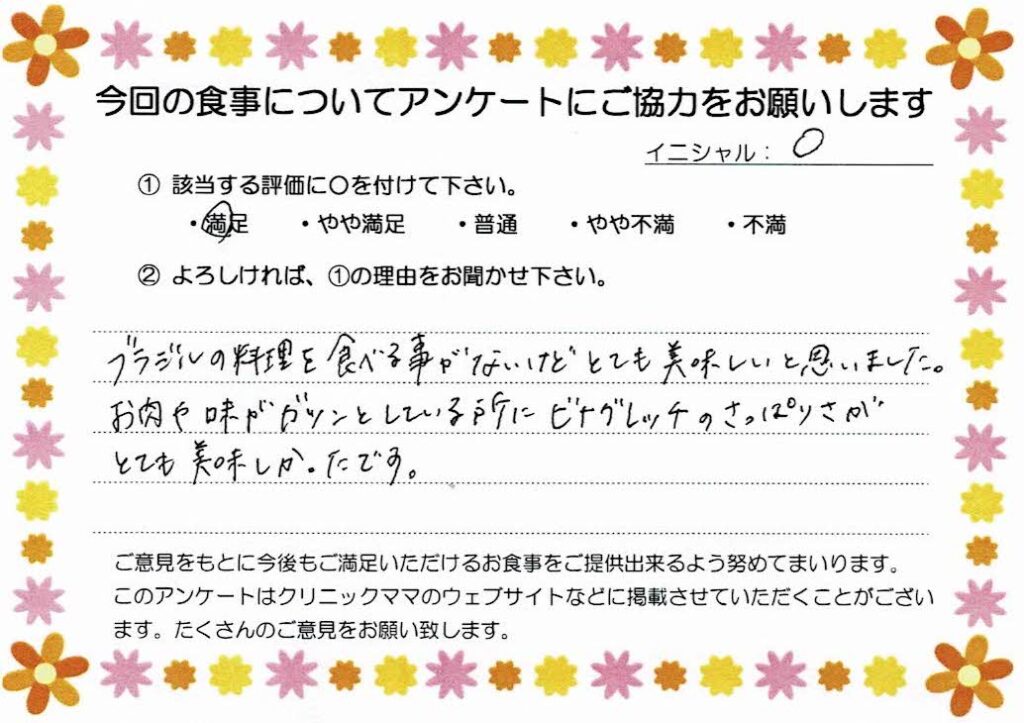 今回の食事についてアンケートにご協力をお願いします
イニシャル： O
① 該当する評価に〇を付けて下さい。
・満足　・やや満足　・普通　・やや不満　・不満
② よろしければ、①の理由をお聞かせ下さい。
ブラジルの料理を食べる事がないけどとても美味しいと思いました。
お肉や味がガツンとしている所にビナグレッチのさっぱりさが
とても美味しかったです。
ご意見をもとに今後もご満足いただけるお食事をご提供出来るよう努めてまいります。
このアンケートはクリニックママのウェブサイトなどに掲載させていただくことがござい
ます。たくさんのご意見をお願い致します。